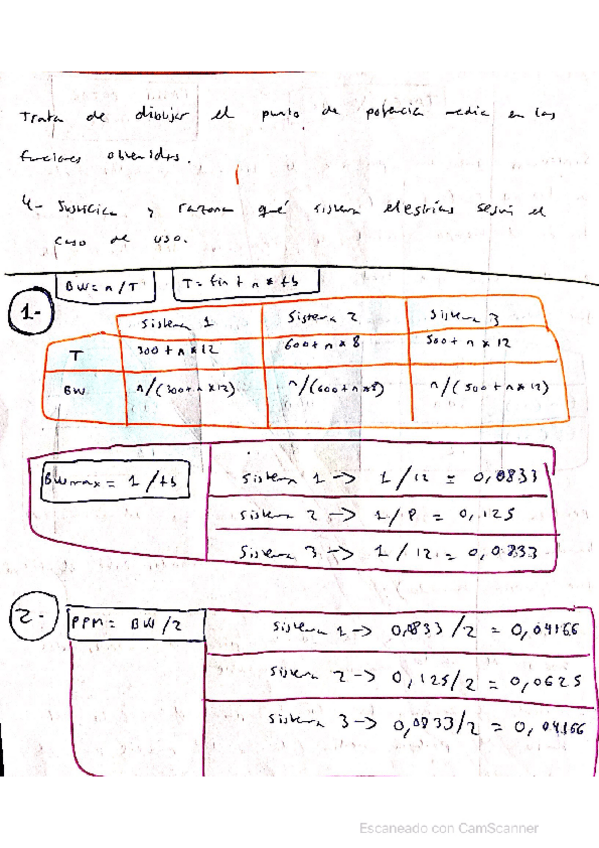 Trata de dibujar el punto de potencia media en las
funciones obtenidas.
4- Justifica y razona qué sistema elegirías según el
caso de uso.
BW = n/T T = tin + n * tb
1-
Sistema 1 Sistema 2 Sistema 3
T 300 + n * 12 600 + n * 8 500 + n * 12
BW n/(300 + n * 12) n/(600 + n * 8) n/(500 + n * 12)
BWmax = 1/tb
Sistema 1 -> 1/12 = 0,0833
Sistema 2 -> 1/8 = 0,125
Sistema 3 -> 1/12 = 0,0833
2-
PPM = BW/2
Sistema 1 -> 0,0833/2 = 0,04166
Sistema 2 -> 0,125/2 = 0,0625
Sistema 3 -> 0,0833/2 = 0,04166
Escaneado con CamScanner